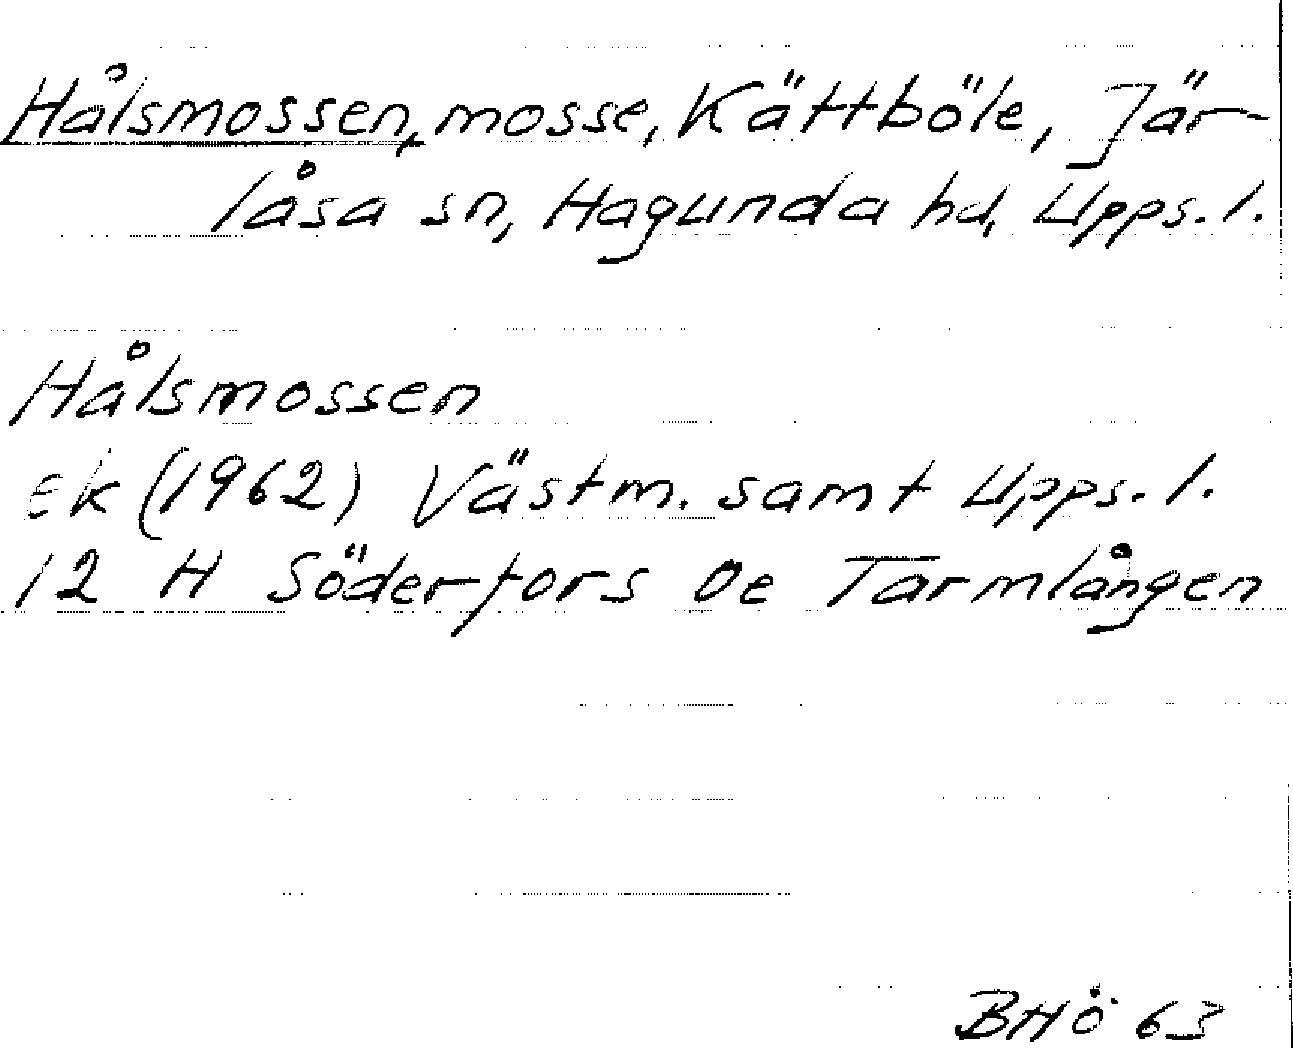 Hålsmossen, mosse, Kättböle, Jär-
låsa sn, Hagunda hd, Upps. l.
Hålsmossen
Ek (1962) Västm. samt Upps. l.
12 H Söderfors 0e Tarmlången
BHÖ 63